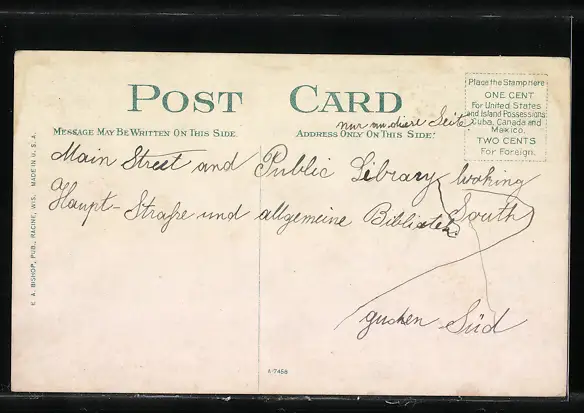 POST CARD
Place the Stamp Here
ONE CENT
For United States
and Island Possessions
Cuba, Canada and
Mexico.
TWO CENTS
For Foreign.
MESSAGE MAY BE WRITTEN ON THIS SIDE.
nur an diese Seite
ADDRESS ONLY ON THIS SIDE.
Main Street and Public Library looking South
Haupt-Straße und allgemeine Bibliotek
gucken Süd
E. A. BISHOP, PUB., RACINE, WIS. MADE IN U. S. A.
A-7458